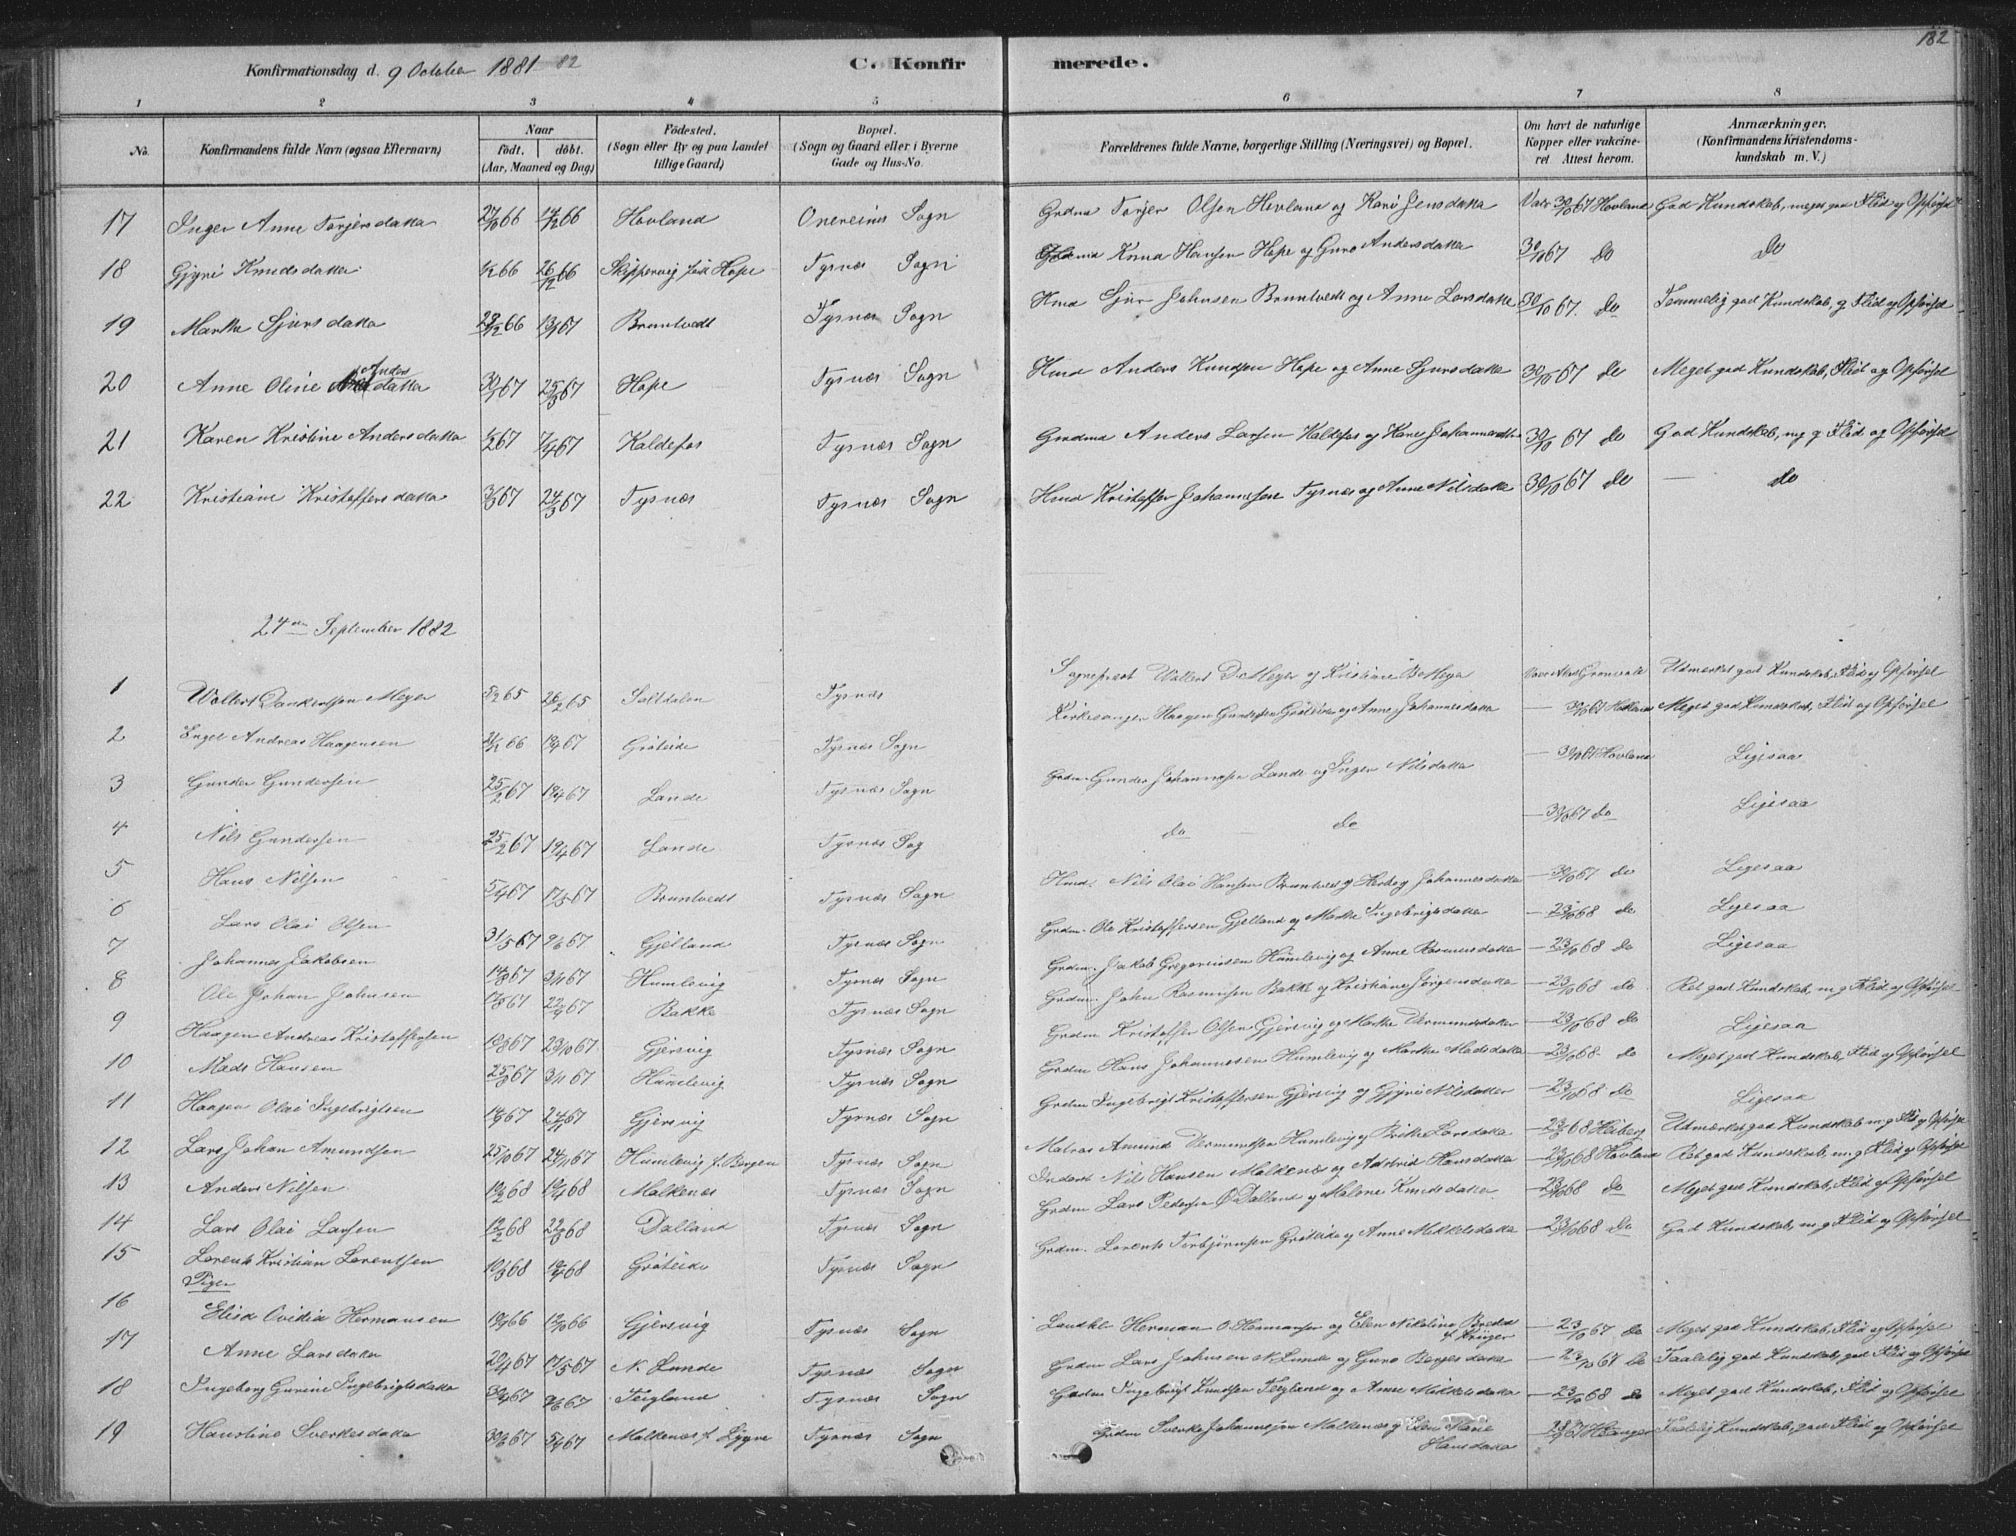 182
Konfirmationsdag d. 9 October 1881-82 C. Konfir merede.
1 2 3 4 5 6 7 8
No. Konfirmandens fulde Navn (ogsaa Efternavn) Naar Födt. döbt. (Aar, Maaned og Dag) Födested. (Sogn eller By og paa Landet tillige Gaard) Bopæl. (Sogn og Gaard eller i Byerne Gade og Hus-No. Forældrenes fulde Navne, borgerlige Stilling (Næringsvei) og Bopæl. Om havt de naturlige Kopper eller vakcineret Attest herom. Anmærkninger. (Konfirmandens Kristendomskundskab m. V.)
17 Inger Anne Torjersdatter Hovland Onereims Sogn Grdmd Torjer Olsen Hovland og Kari Jensdatter Vacc 30/10 67 Hovland God Kundskab, meget god Flid og Opførsel
18 Gjyri Knudsdatter 26/12 66 Skippervig fød Hope Tysnæs Sogn Knud Hansen Hope og Guro Andersdatter 30/10 67 do do
19 Marthe Sjursdatter 13/1 67 Bruntvedt Tysnæs Sogn Hmd Sjur Johnsen Bruntvedt og Anne Larsdatter 30/10 67 do Temmelig god Kundskab, g Flid og Opførsel
20 Anne Oline Andersdatter 30/1 67 25/3 67 Hope Tysnæs Sogn Hmd Anders Knudsen Hope og Anne Sjursdatter 30/10 67 do Meget god Kundskab, Flid og Opførsel
21 Karen Kristine Andersdatter 7/4 67 Kaldefos Tysnæs Sogn Grdmd Anders Larsen Kaldefos og Kari Johannesdtr 30/10 67 do God Kundskab, mg g Flid og Opførsel
22 Kristiane Kristoffersdatter 3/3 67 24/3 67 Tysnæs Tysnæs Sogn Hmd Kristoffer Johannessen Tysnæs og Anne Nilsdatter 30/10 67 do - do
24de September 1882
1 Wollert Danckertsen Meyer 26/2 65 Saltdalen Tysnæs Sogneprest Wollert D. Meyer og Kristiane B. Meyer Udmærket god Kundskab, Flid og Opførsel
2 Engel Andreas Haagensen Gröteide Tysnæs Sogn Kirkesanger Haagen Gundersen Gröteide og Anne Johannesdatter - 30/10 67 Hovland Meget god Kundskab, Flid og Opførsel
3 Gunder Gundersen 25/2 67 19/4 67 Lande Tysnæs Sogn Grdm. Gunder Johannessen Lande og Inger Nilsdatter - 30/10 67 Hovland Ligesaa
4 Nils Gundersen 25/2 67 19/4 67 Lande Tysnæs Sog do - do - 30/10 67 do Ligesaa
5 Hans Nilsen 5/4 67 17/5 67 Bruntvedt Tysnæs Sogn Hmd. Nils Olai Hansen Bruntvedt og Herborg Johannesdatter - 30/10 67 do Ligesaa
6 Lars Olai Olsen 31/5 67 9/6 67 Gjelland Tysnæs Sogn Grdm. Ole Kristoffersen Gjelland og Marthe Ingebrigtsdatter - 23/10 68 do Ligesaa
7 Johannes Jakobsen 14/8 67 3/11 67 Humlevig Tysnæs Sogn Grdm. Jakob Gregoriussen Humlevig og Anne Rasmusdatter - 23/10 68 do Ligesaa
8 Ole Johan Johnsen 17/8 67 22/9 67 Bakke Tysnæs Sogn Grdm. John Rasmussen Bakke og Kristiane Jørgensdatter - 23/10 68 do Ret god Kundskab, m g Flid og Opførsel
9 Haagen Andreas Kristoffersen 18/8 67 23/10 67 Gjersvig Tysnæs Sogn Grdm Kristoffer Olsen Gjersvig og Marthe Vermundsdatter - 23/10 68 do Ligesaa
10 Mads Hansen 25/8 67 3/11 67 Humlevig Tysnæs Sogn Grdm Hans Johannessen Humlevig og Marthe Madsdatter - 23/10 68 do Meget god Kundskab, Flid og Opførsel
11 Haagen Olai Ingebrigtsen 24/11 67 Gjersvig Tysnæs Sogn Grdm Ingebrigt Kristoffersen Gjersvig og Gjyri Nilsdatter - 23/10 68 do Ligesaa
12 Lars Johan Amundsen 25/10 67 24/11 67 Humlevig f. Bergen Tysnæs Sogn Matros Amund Vermundsen Humlevig og Brithe Larsdatter 68 Heiberg Udmærket god Kundskab m g Flid og Opførsel
13 Anders Nilsen 68 Malkenæs Tysnæs Sogn Inderst Nils Hansen Malkenæs og Astrid Hansdatter - 23/10 68 Hovland Ret god Kundskab, m g Flid og Opførsel
14 Lars Olai Larsen 12/2 68 22/3 68 Dalland Tysnæs Sogn Grdm Lars Pedersen Ø Dalland og Malene Knudsdatter - 23/10 68 do Meget god Kundskab, Flid og Opførsel
15 Lorents Kristian Lorentsen 10/3 68 Gröteide Tysnæs Sogn Grdm. Lorents Torbjørnsen Gröteide og Anne Mikkelsdatter - 23/10 68 do God Kundskab, m g Flid og Opførsel
Piger
16 Elisa Ovidia Hermansen 66 66 Gjersvig Tysnæs Sogn Landhl. Herman O. Hermansen og Elen Nikoline Bredal f. Krüger - 23/10 67 do Meget god Kundskab, Flid og Opførsel
17 Anne Larsdatter 20/4 67 17/5 67 N. Lunde Tysnæs Sogn Grdm Lars Johnsen N. Lunde og Guro Børgesdatter - 23/10 67 do Taalelig god Kundskab, god Flid og Opførsel
18 Ingeborg Gurine Ingebrigtsdatter 30/4 67 9/6 67 Teigland Tysnæs Sogn Grdm Ingebrigt Knudsen Teigland og Anne Mikkelsdatter - 23/10 68 do Meget god Kundskab, Flid og Opførsel
19 Haustine Sverkesdatter 67 67 Malkenæs f. Lygre Tysnæs Sogn Grdm Sverke Johannessen Malkenæs og Elen Marie Hansdatter Taalelig Kundskab, god Flid og Opførsel